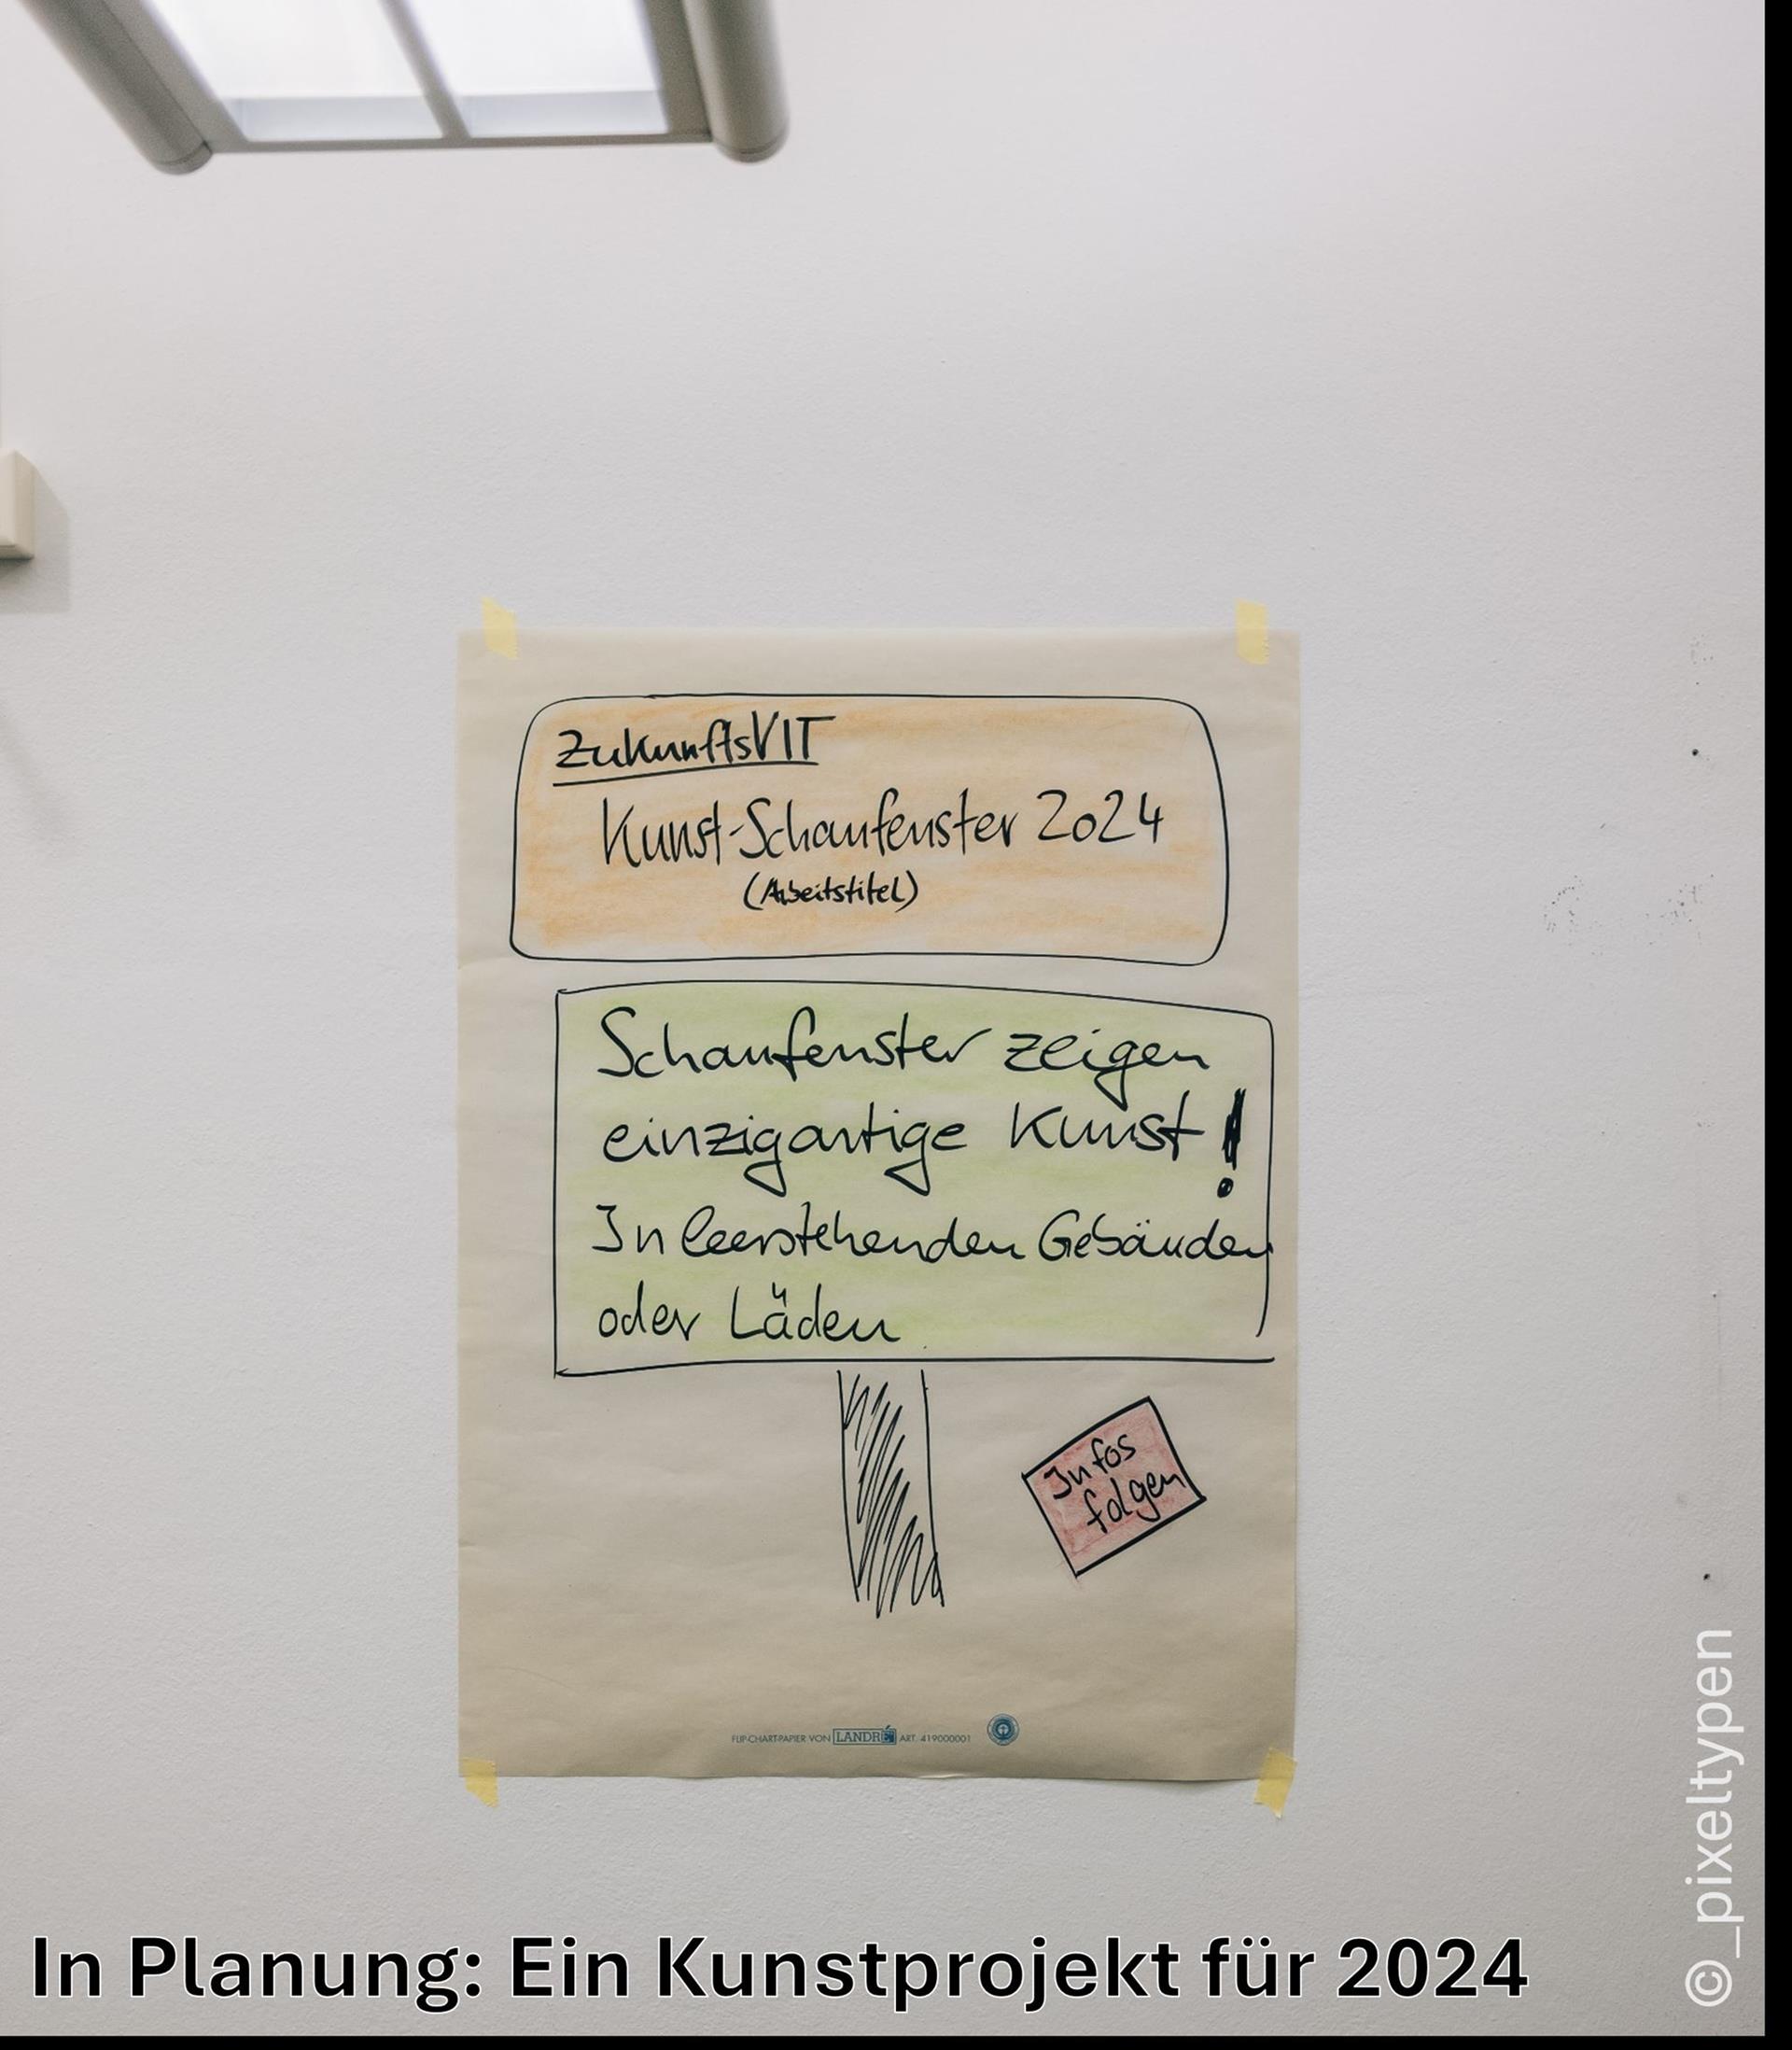 ZukunftsVIT
Kunst-Schaufenster 2024
(Arbeitstitel)
Schaufenster zeigen
einzigartige Kunst!
In leerstehenden Gebäuden
oder Läden
Infos
folgen
FLIP-CHART-PAPIER VON LANDRÉ ART. 419000001
In Planung: Ein Kunstprojekt für 2024
©_pixeltypen